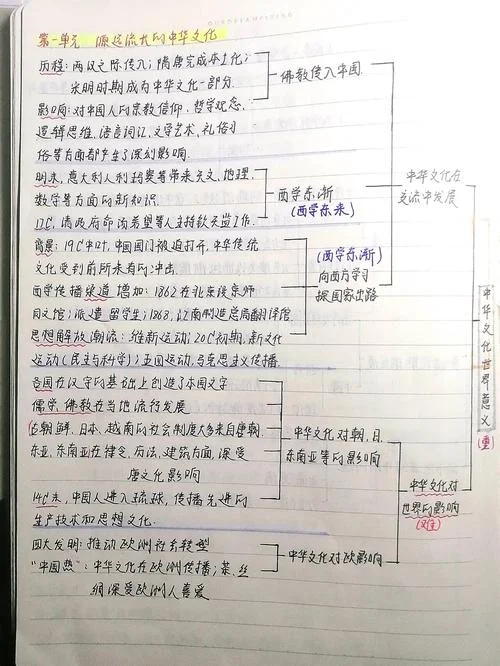 第一单元 源远流长的中华文化
历程：两汉之际传入；隋唐完成本土化；
宋明时期成为中华文化一部分
佛教传入中国
影响：对中国人的宗教信仰、哲学观念、
逻辑思维、语言词汇、文学艺术、礼俗习
俗等方面都产生了深刻影响
明末，意大利人利玛窦等带来天文、地理、
数学等方面的新知识
17C，清政府命汤若望等人主持钦天监工作
西学东渐
（西学东来）
背景：19C中叶，中国国门被迫打开，中华传统
文化受到前所未有的冲击
西学传播渠道增加：1862在北京设京师
同文馆；派遣留学生；1868，江南制造总局翻译馆
思想解放潮流：维新运动；20C初期，新文化
运动（民主与科学）；五四运动，马克思主义传播
（西学东渐）
向西方学习
探国家出路
中华文化在
交流中发展
各国在汉字的基础上创造了本国文字
儒学、佛教在当地流行发展
古朝鲜、日本、越南的社会制度大多来自唐朝
东亚、东南亚在律令、历法、建筑方面，深受
唐文化影响
14C末，中国人进入琉球，传播先进的
生产技术和思想文化
中华文化对朝、日、
东南亚等的影响
四大发明：推动欧洲社会转型
“中国热”：中华文化在欧洲传播；茶、丝
绸深受欧洲人喜爱
中华文化对欧影响
中华文化对
世界的影响
（难）
中华文化世界意义
（重）